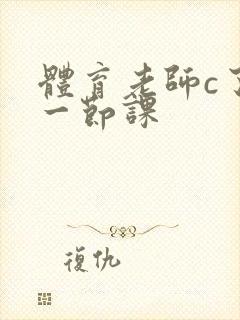 體育老師c了
一節課
復仇